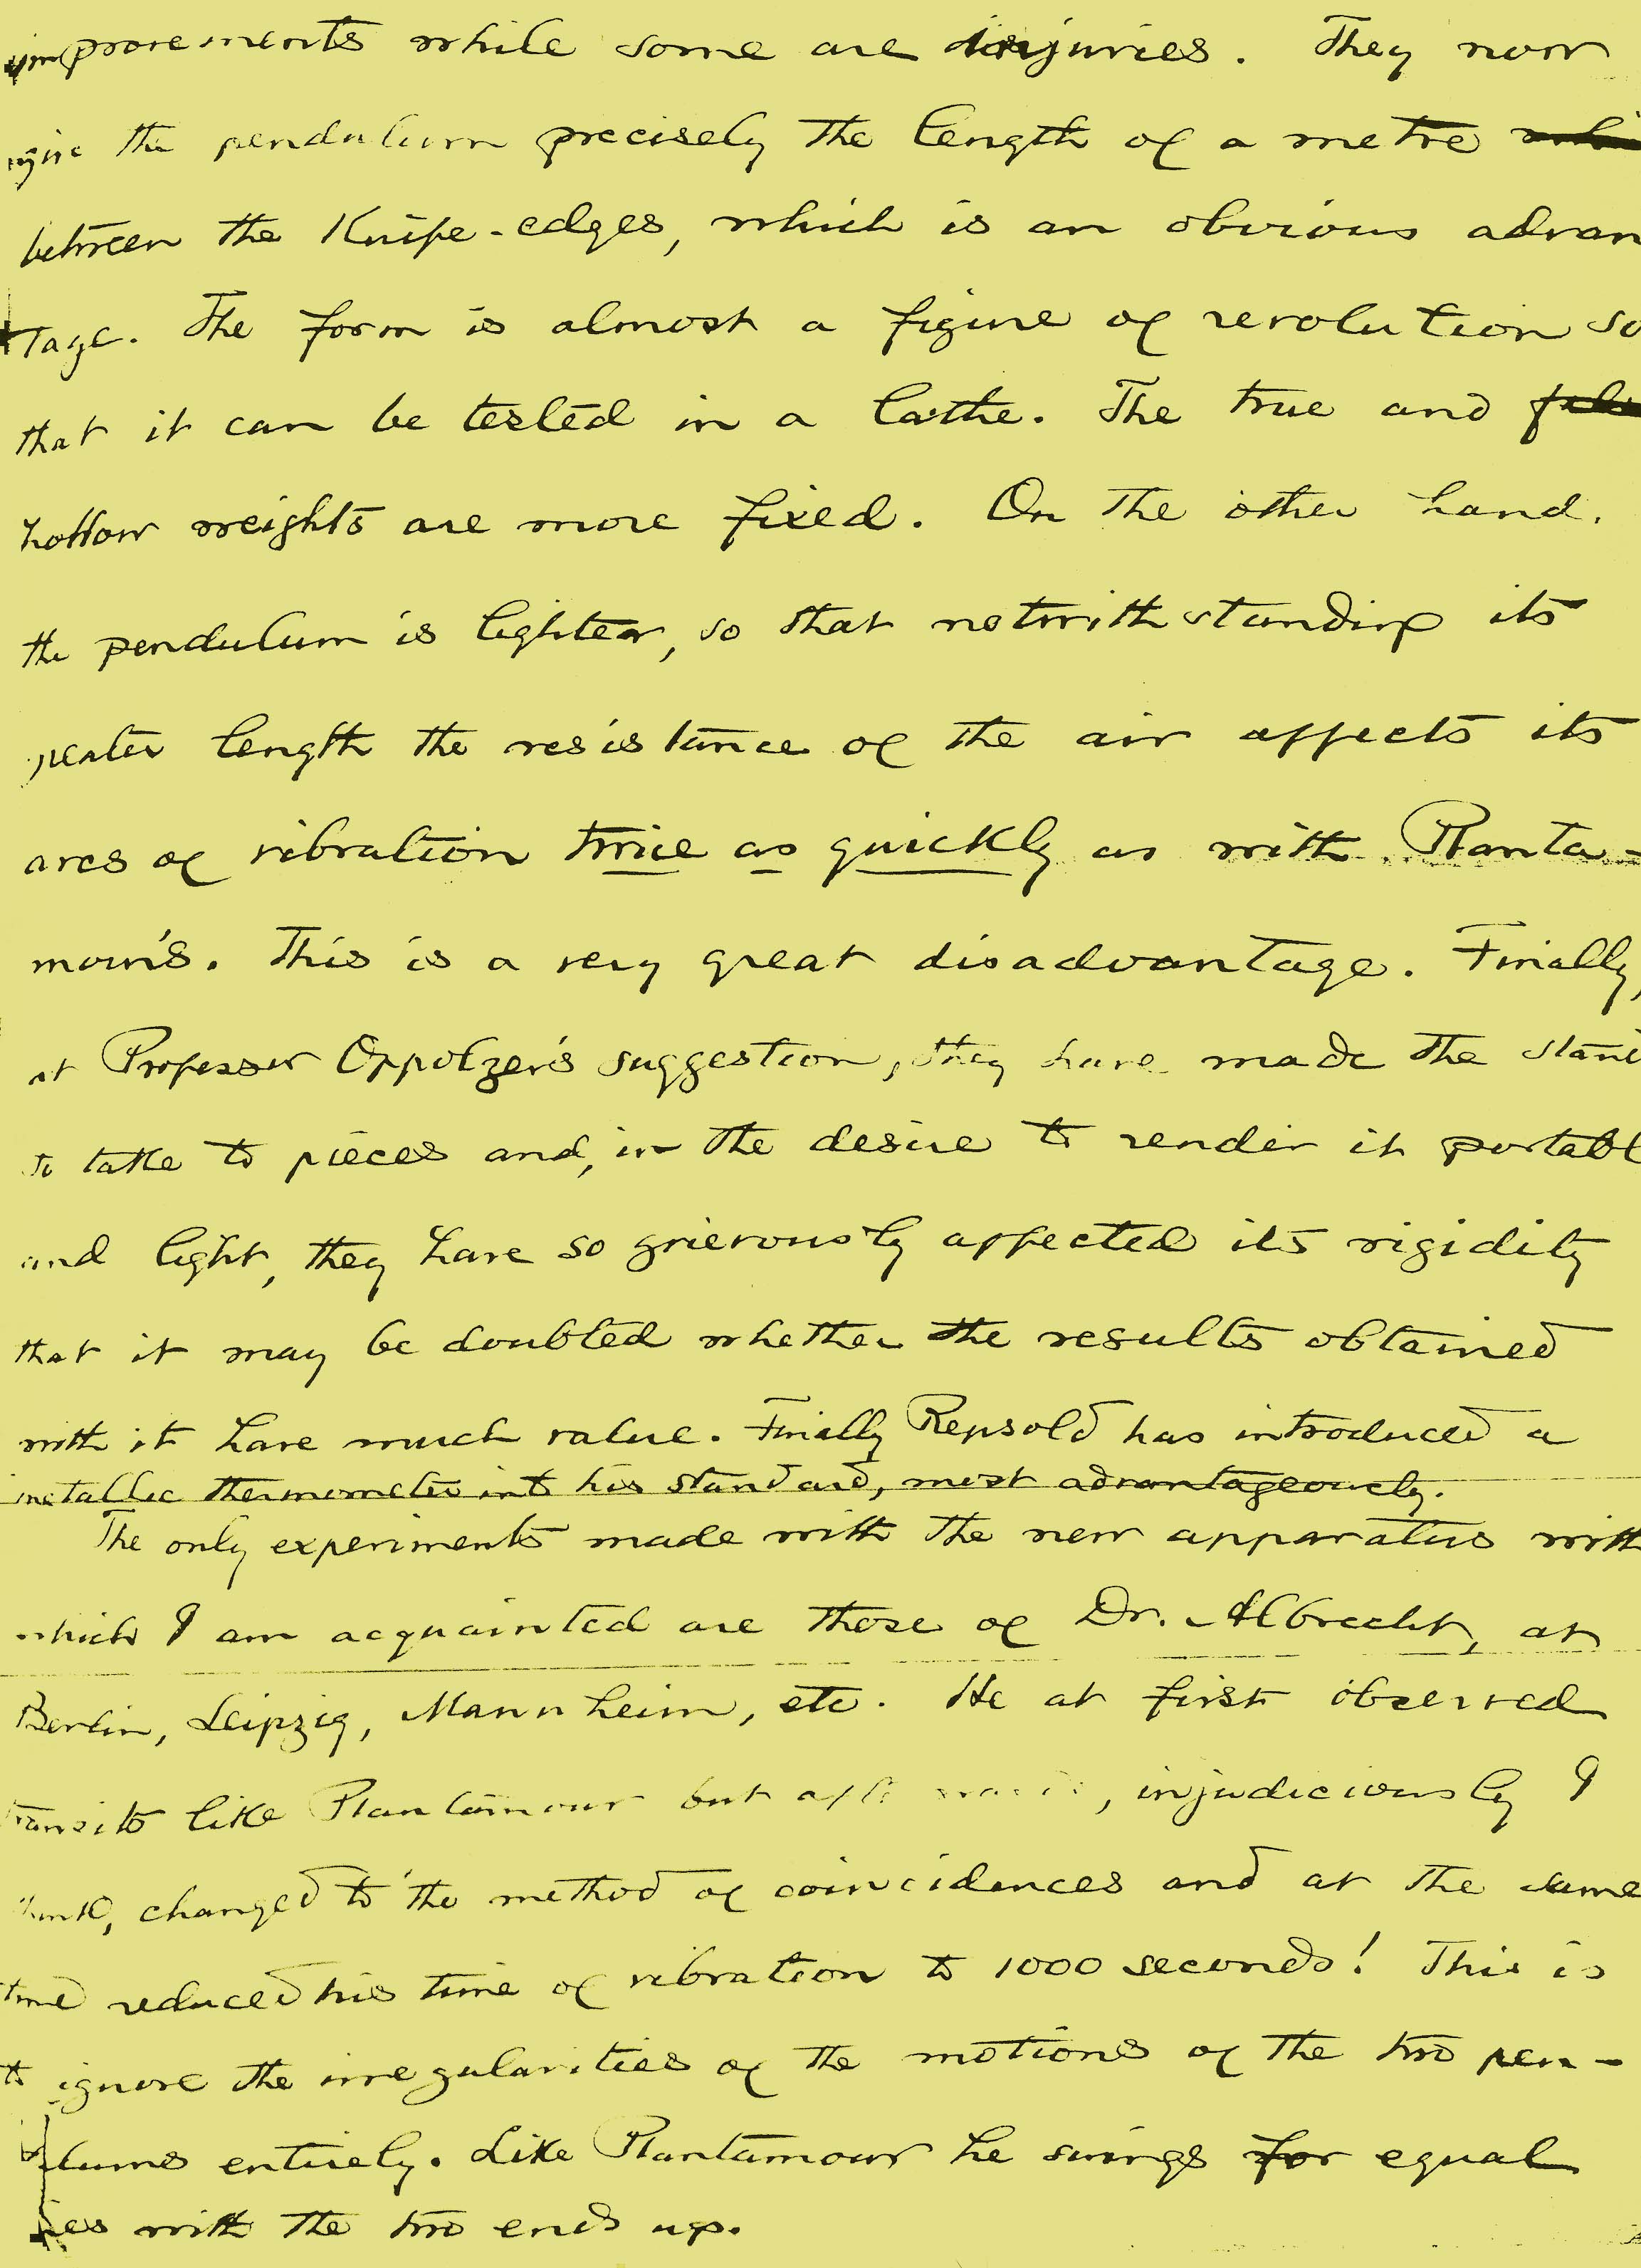 improvements while some are injuries. They now
give the pendulum precisely the length of a metre
between the Knife-edges, which is an obvious advan
tage. The form is almost a figure of revolution so
that it can be tested in a lathe. The true and
hollow weights are more fixed. On the other hand,
the pendulum is lighter, so that notwithstanding its
greater length the resistance of the air affects its
arcs of vibration twice as quickly as with Planta-
mour's. This is a very great disadvantage. Finally,
at Professor Oppolzer's suggestion, they have made the stand
to take to pieces and, in the desire to render it portabl
and light, they have so grievously affected its rigidity
that it may be doubted whether the results obtained
with it have much value. Finally Repsold has introduced a
metallic thermometer into his standard, most advantageously.
The only experiments made with the new apparatus with
which I am acquainted are those of Dr. Albrecht, at
Berlin, Leipzig, Mannheim, etc. He at first observed
transits like Plantamour but, injudiciously I
think, changed to the method of coincidences and at the same
time reduced his time of vibration to 1000 seconds! This is
to ignore the irregularities of the motions of the two pen-
dulums entirely. Like Plantamour he swings for equal
with the two ends up.